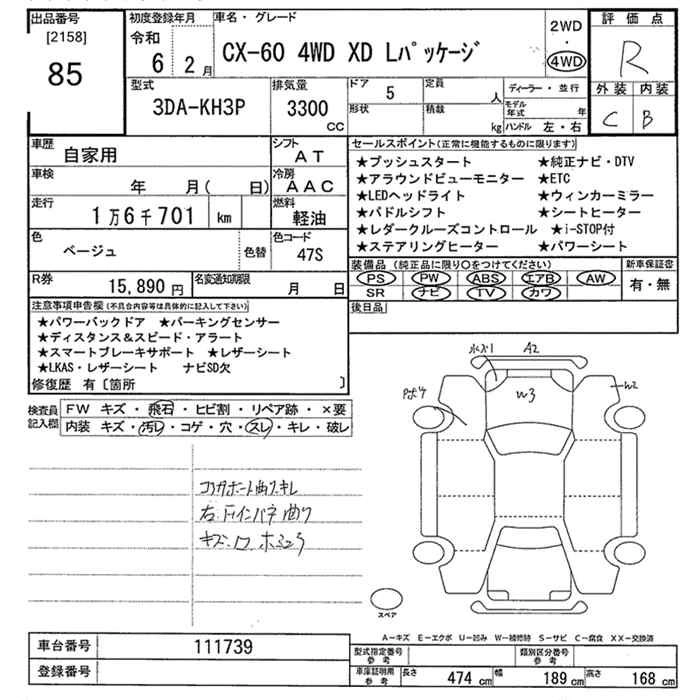 出品番号
[2158]
85
初度登録年月
令和
6 2月
車名・グレード
CX-60 4WD XD Lパッケージ
2WD
・
4WD
評価点
R
外装 内装
C B
型式
3DA-KH3P
排気量
3300
CC
ドア 5
定員 人
形状
積載 kg
ディーラー・並行
モデル年式 年
ハンドル 左・右
車歴
自家用
シフト
AT
車検
年 月( 日)
冷房
AAC
走行
1万6千701 km
燃料
軽油
色
ベージュ
色替
色コード
47S
R券
15,890円
名変通知期限
月 日
セールスポイント(正常に機能するものに限ります)
★プッシュスタート ★純正ナビ・DTV
★アラウンドビューモニター ★ETC
★LEDヘッドライト ★ウィンカーミラー
★パドルシフト ★シートヒーター
★レダークルーズコントロール ★i-STOP付
★ステアリングヒーター ★パワーシート
装備品(純正品に限り〇をつけてください)
PS PW ABS エアB AW
SR ナビ TV カワ
新車保証書
有・無
後日品
注意事項申告欄(不具合内容等は具体的に記入して下さい)
★パワーバックドア ★パーキングセンサー
★ディスタンス&スピード・アラート
★スマートブレーキサポート ★レザーシート
★LKAS・レザーシート ナビSD欠
修復歴 有〔箇所 〕
検査員記入欄
FW キズ・飛石・ヒビ割・リペア跡・×要
内装 キズ・汚レ・コゲ・穴・スレ・キレ・破レ
コアサポート曲ス、キレ
右、Fインパネ曲り
A2
W3
W2
スペア
A-キズ E-エクボ U-凹み W-補修跡 S-サビ C-腐食 XX-交換済
車台番号 111739
登録番号
型式指定番号 参考
類別区分番号 参考
車庫証明用 参考
長さ 474cm 幅 189cm 高さ 168cm